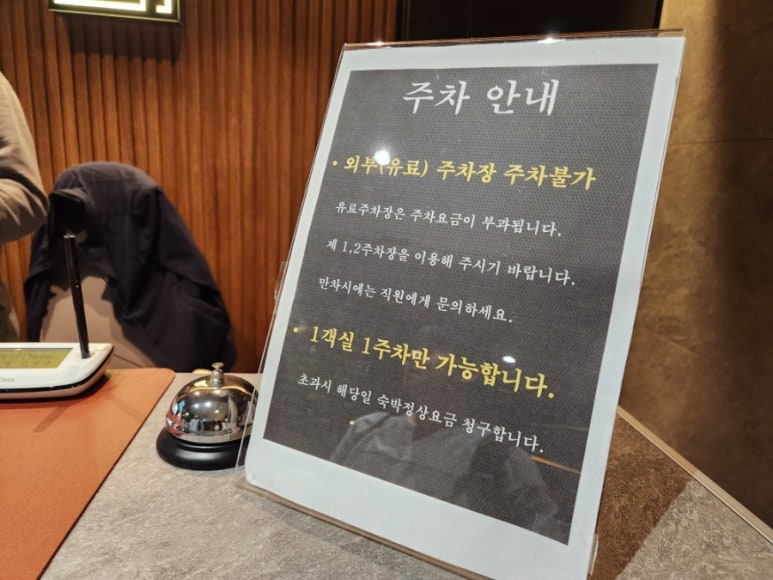 주차 안내
• 외부(유료) 주차장 주차불가
유료주차장은 주차요금이 부과됩니다.
제 1,2주차장을 이용해 주시기 바랍니다.
만차시에는 직원에게 문의하세요.
• 1객실 1주차만 가능합니다.
초과시 해당일 숙박정상요금 청구합니다.